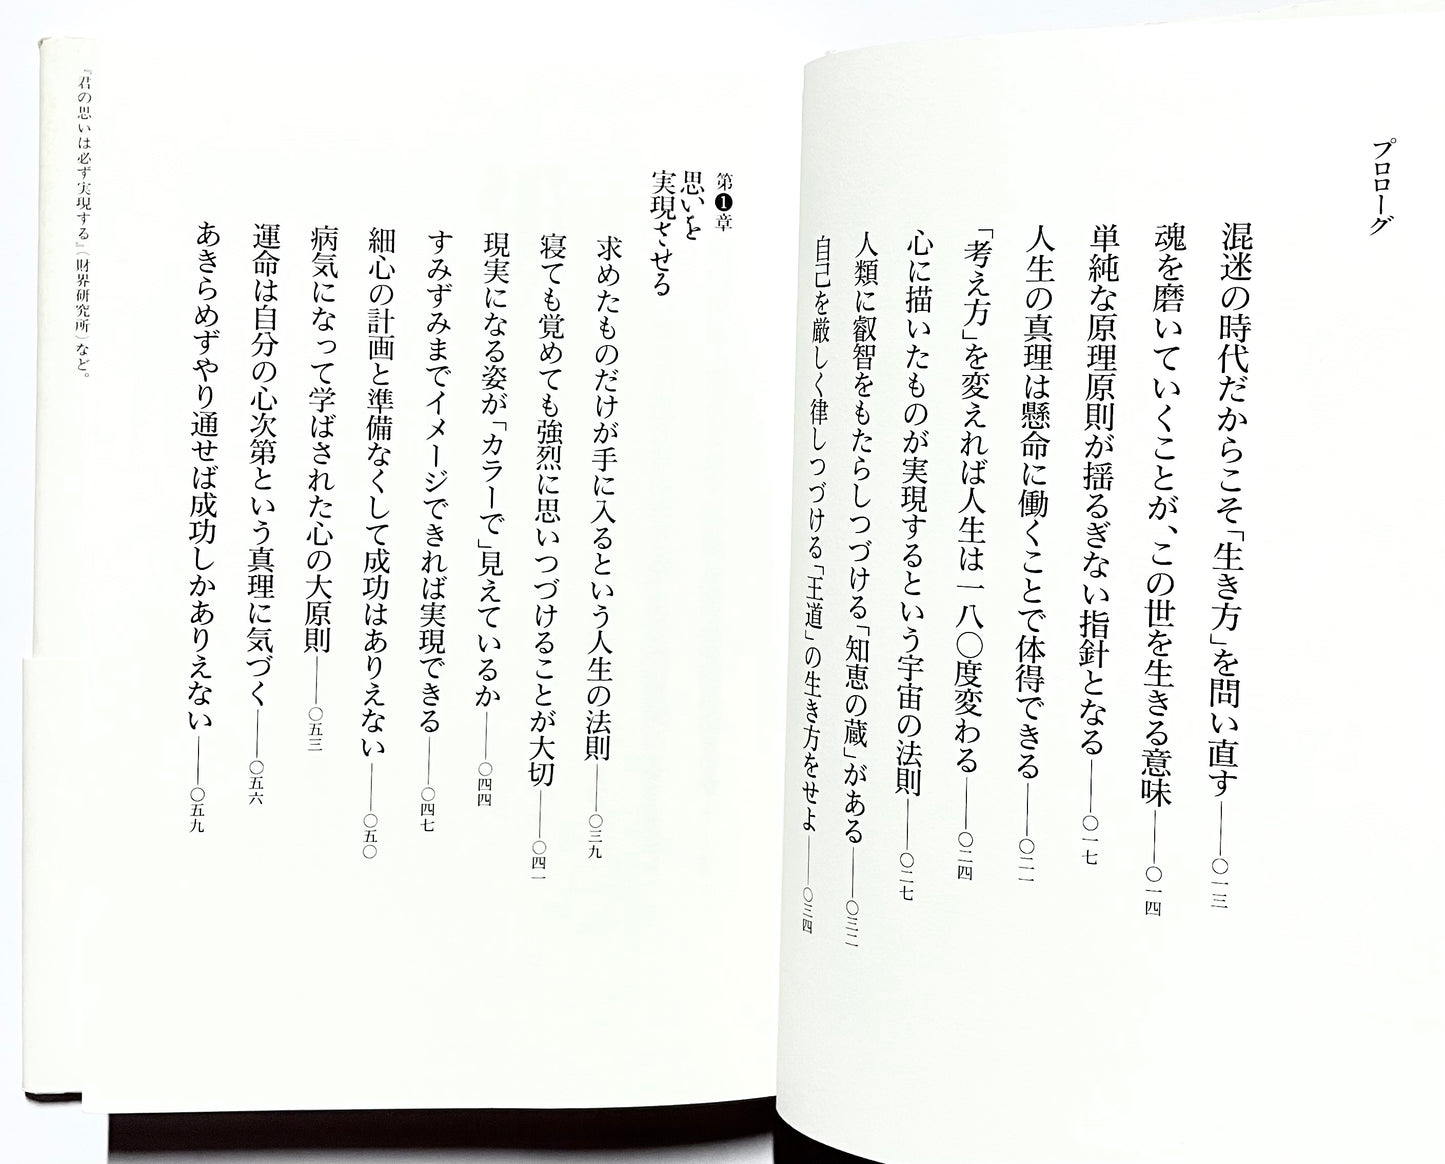 プロローグ
混迷の時代だからこそ「生き方」を問い直す――〇一三
魂を磨いていくことが、この世を生きる意味――〇一四
単純な原理原則が揺るぎない指針となる――〇一七
人生の真理は懸命に働くことで体得できる――〇二一
「考え方」を変えれば人生は一八〇度変わる――〇二四
心に描いたものが実現するという宇宙の法則――〇二七
人類に叡智をもたらしつづける「知恵の蔵」がある――〇三二
自己を厳しく律しつづける「王道」の生き方をせよ――〇三四
第❶章
思いを
実現させる
求めたものだけが手に入るという人生の法則――〇三九
寝ても覚めても強烈に思いつづけることが大切――〇四一
現実になる姿が「カラーで」見えているか――〇四四
すみずみまでイメージできれば実現できる――〇四七
細心の計画と準備なくして成功はありえない――〇五〇
病気になって学ばされた心の大原則――〇五三
運命は自分の心次第という真理に気づく――〇五六
あきらめずやり通せば成功しかありえない――〇五九
『君の思いは必ず実現する』（財界研究所）など。